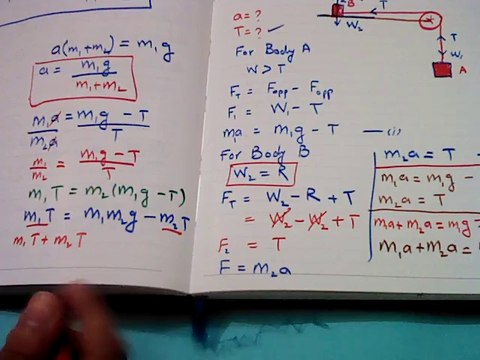 a(m₁+m₂) = m₁g
a = m₁g / m₁+m₂
m₁a / m₂a = m₁g - T / T
m₁ / m₂ = m₁g - T / T
m₁T = m₂(m₁g - T)
m₁T = m₁m₂g - m₂T
m₁T + m₂T
a = ?
T = ? ✓
For Body A
W > T
F_T = F_opp - F_opp
F₁ = W₁ - T
m₁a = m₁g - T —(i)
For Body B
W₂ = R
F_T = W₂ - R + T
= W₂ - W₂ + T
F₂ = T
F = m₂a
B
T
W₂
T
W₁
A
m₂a = T -
m₁a = m₁g -
m₂a = T
m₁a + m₂a = m₁g =
m₁a + m₂a =